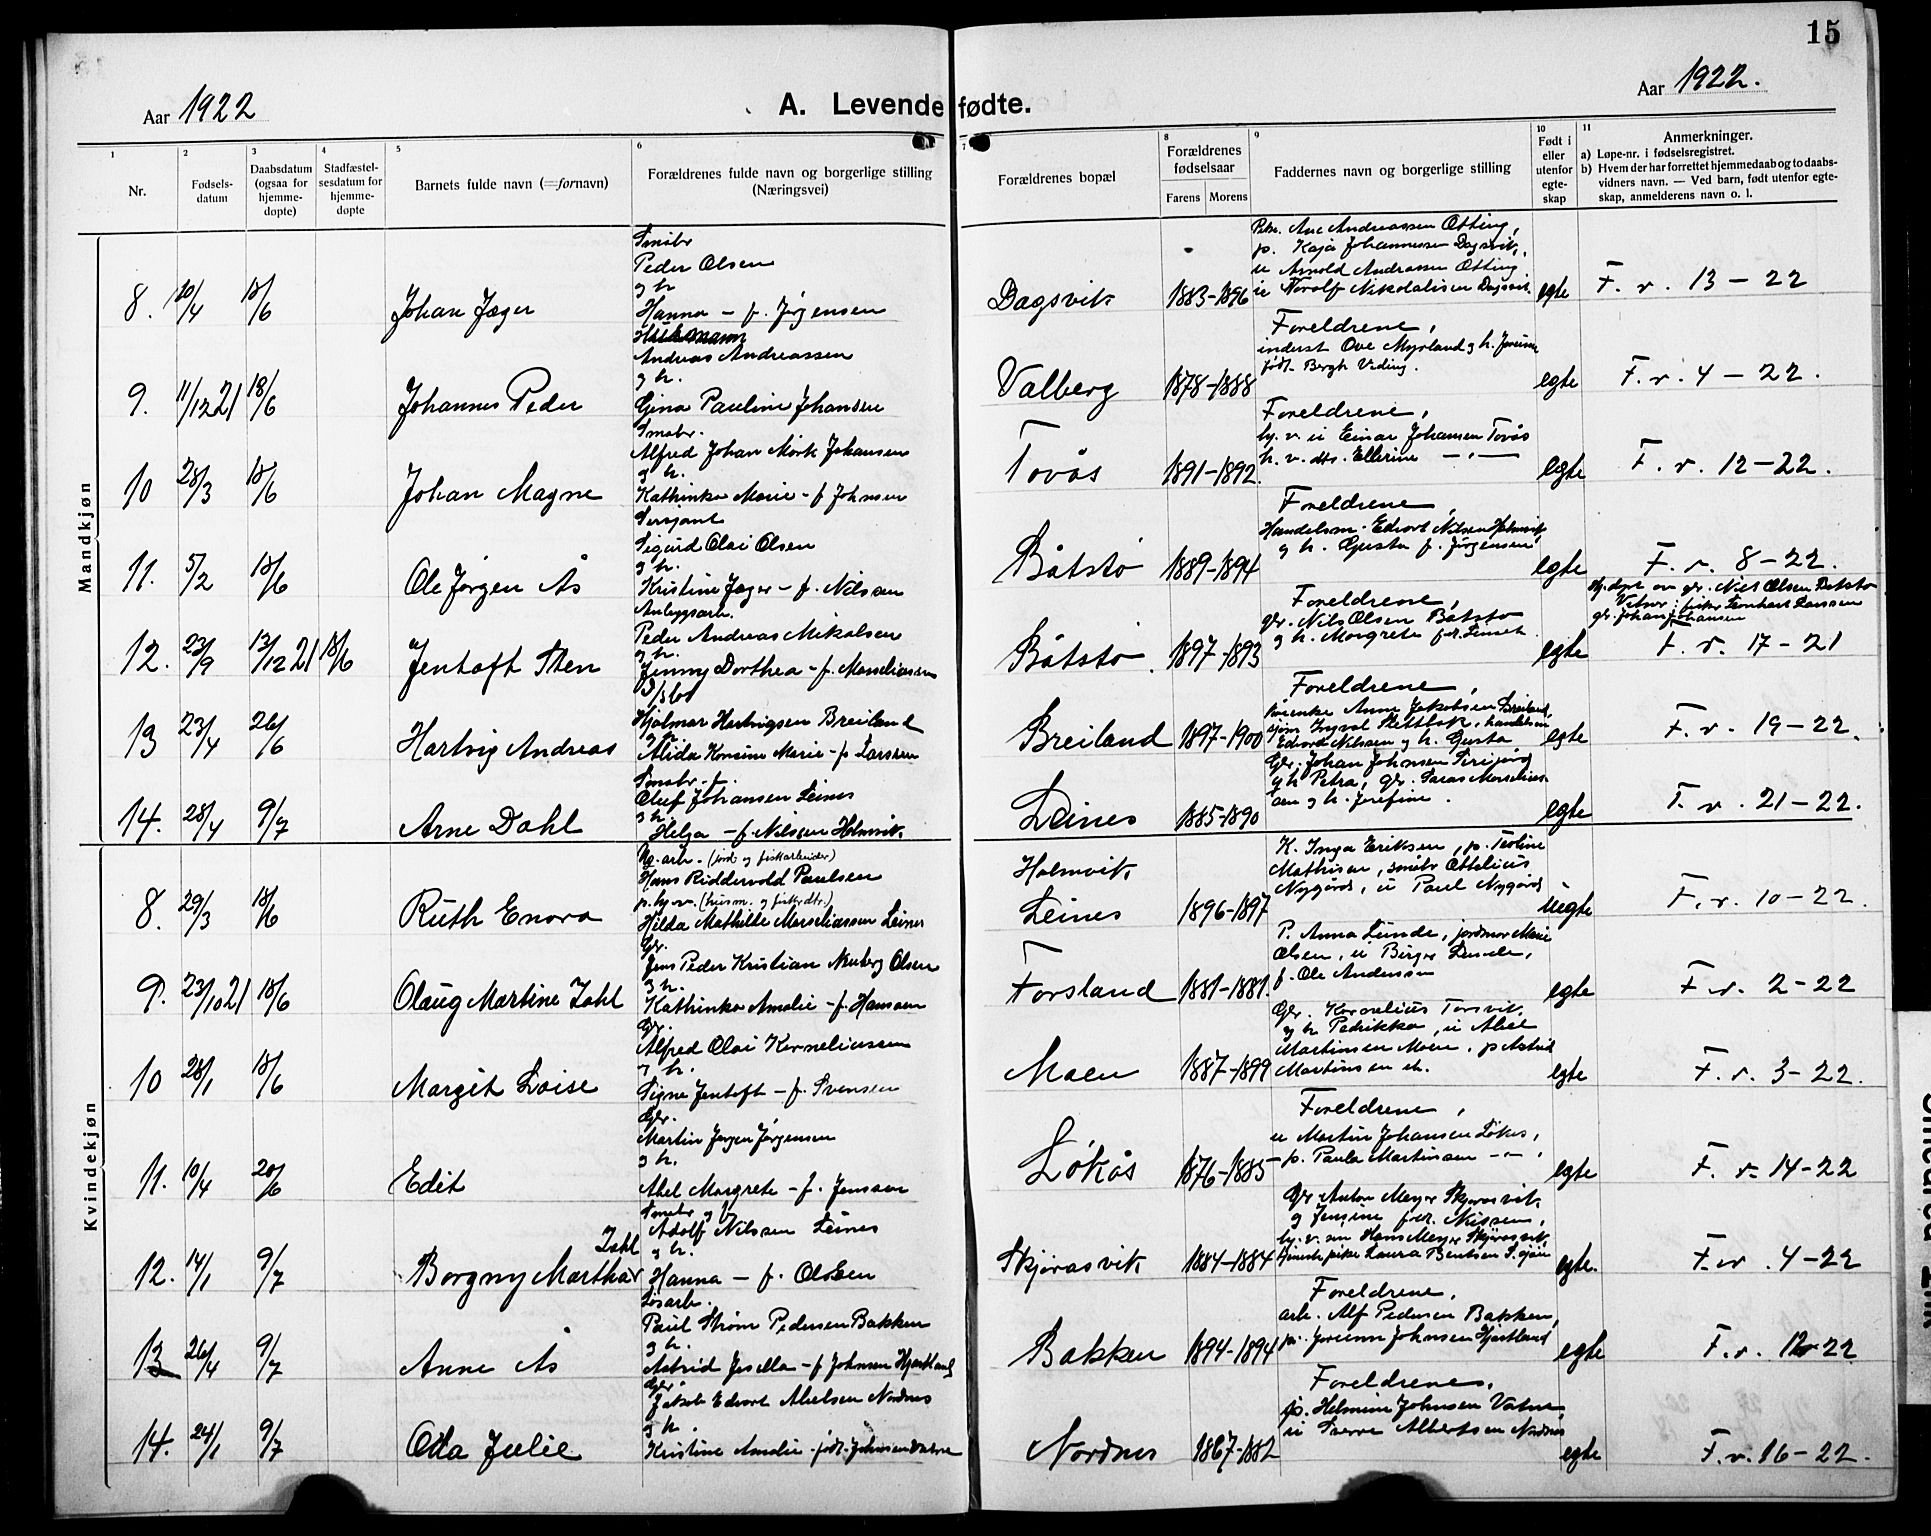 15
Aar 1922
A. Levendefødte.
Aar 1922.
1 Nr.
2 Fødsels-datum
3 Daabsdatum (ogsaa for hjemme-døpte)
4 Stadfæstel-sesdatum for hjemme-døpte
5 Barnets fulde navn (=fornavn)
6 Forældrenes fulde navn og borgerlige stilling (Næringsvei)
7 Forældrenes bopæl
8 Forældrenes fødselsaar Farens Morens
9 Faddernes navn og borgerlige stilling
10 Født i eller utenfor egte-skap
11 Anmerkninger.
a) Løpe-nr. i fødselsregistret.
b) Hvem der har forrettet hjemmedaab og to daabs-vidners navn. — Ved barn, født utenfor egte-skap, anmelderens navn o. l.
Mandkjøn
8. 10/4 18/6 Johan Jæger
Smábr
Peder Olsen
og h
Hanna - f. Jørgensen
Dagsvik 1883-1896
egte F. r. 13 - 22
9. 11/12 21 18/6 Johannes Peder
Andreas Andreassen
og h.
Gina Pauline Johansen
Valberg 1878-1888
Foreldrene,
inderst Ove Myrland og h.
egte F. r. 4 - 22.
10 28/3 18/6 Johan Magne
Smabr.
Alfred Johan Mørk Johansen
og h.
Kathinka Marie - f Johnsen
Tovås 1891-1892.
Foreldrene,
Einar Johansen Tovås
Ellerine
egte F. r. 12-22.
11. 5/2 18/6 Ole Jørgen Ås
Serjant
Sigurd Olai Olsen
og h.
Kristine Jæger - f. Nilssen
Båtstø 1889-1894
Foreldrene,
Handelsm. Edvart Nilsen Holmvik
og h. Gusta f. Jørgensen
egte F. r. 8-22.
12. 23/9 13/12 21 18/6 Jentoft Sten
Anlegsarb.
Peder Andreas Mikalsen
og h.
Jenny Dorthea - f. Marseliassen
Båtstø. 1897-1893
Foreldrene,
gr. Nils Olsen Båtstø
og h. Margrete
egte
gr. Johan Johansen
F. r. 17-21
13 23/4 26/6 Hartvig Andreas
Hjalmar Hartvigsen Breiland
og h.
Alida Konsine Marie - f. Larssen
Breiland 1897-1900
Foreldrene,
enke Anne Jakobsen Breiland,
Edvard Nilssen og h. Gusta
egte F. r. 19-22.
14. 28/4 9/7 Arne Dahl
Smabr. f.
Oluf Johansen Leines
og h.
Helga - f. Nilssen Holmvik.
Leines 1885-1890
Gbr. Johan Johnsen
og h Petra, gbr.
og h. Josefine.
egte F. r. 21-22.
Kvindekjøn
8. 29/3 18/6 Ruth Enora
Hans Riddervold Paulsen
Hilda Mathilde Marseliassen Leines
Holmvik
Leines 1896-1897
K. Inga Eriksen, p. Teoline
Mathisen, småbr Ottelius
Nygård, u Paul Nygård
uegte F. r. 10-22.
9. 23/10 21 18/6 Olaug Martine Zahl
Gbr.
Jens Peder Kristian Nyberg Olsen
og h.
Kathinka Amalie - f. Hansen
Forsland 1881-1881.
P. Anna Lunde, jordmor Marie
Olsen, u Birger Lunde,
f. Ole Andersen
egte F. r. 2-22
10 28/1 18/6 Margit Loise
Gbr.
Alfred Olai Korneliussen
og h.
Signe Jentoft - f. Svensen
Moen 1887-1899
Gbr. Kornelius Torsvik
og h Pedrikka, u Abel
Martinsen Moen, p Astrid
Martinsen
egte F. r. 3-22.
11. 10/4 20/6 Edit
Gbr.
Martin Jørgen Jørgensen
og h.
Abel Margrete - f. Jenssen
Løkås 1876-1885
Foreldrene,
u Martin Johansen Løkås,
p. Paula Martinsen - " -
egte F. r. 14-22
12. 14/1 9/7 Borgny Martha Zahl
Smabr og f.
Adolf Nilsen Leines
og h.
Hanna - f. Olsen
Skjerasvik 1884-1884
Gbr Anton Meyer Skjerasvik
og Jensine
Hans Meyer Skjerasvik
pike Laura Bentsen
egte. F. r. 4-22
13 26/4 9/7 Anne Ås
Løsarb.
Paul Strøm Pedersen Bakken
og h.
Astrid Jesella - f Johnsen Hjartland
Bakken 1894-1894
Foreldrene,
arb. Alf Pedersen Bakken,
pi. Jorunn Johnsen Hjartland
egte F. r. 12-22
14. 24/1 9/7 Oda Julie
Gbr.
Jakob Edvart Abelsen Nordnes
og h.
Kristine Amalie - født Johnsen Vatne
Nordnes 1867-1882
Foreldrenes,
p. Helmine Johnsen Vatne
u Sverre Albertsen Nordnes
egte F. r. 16-22.